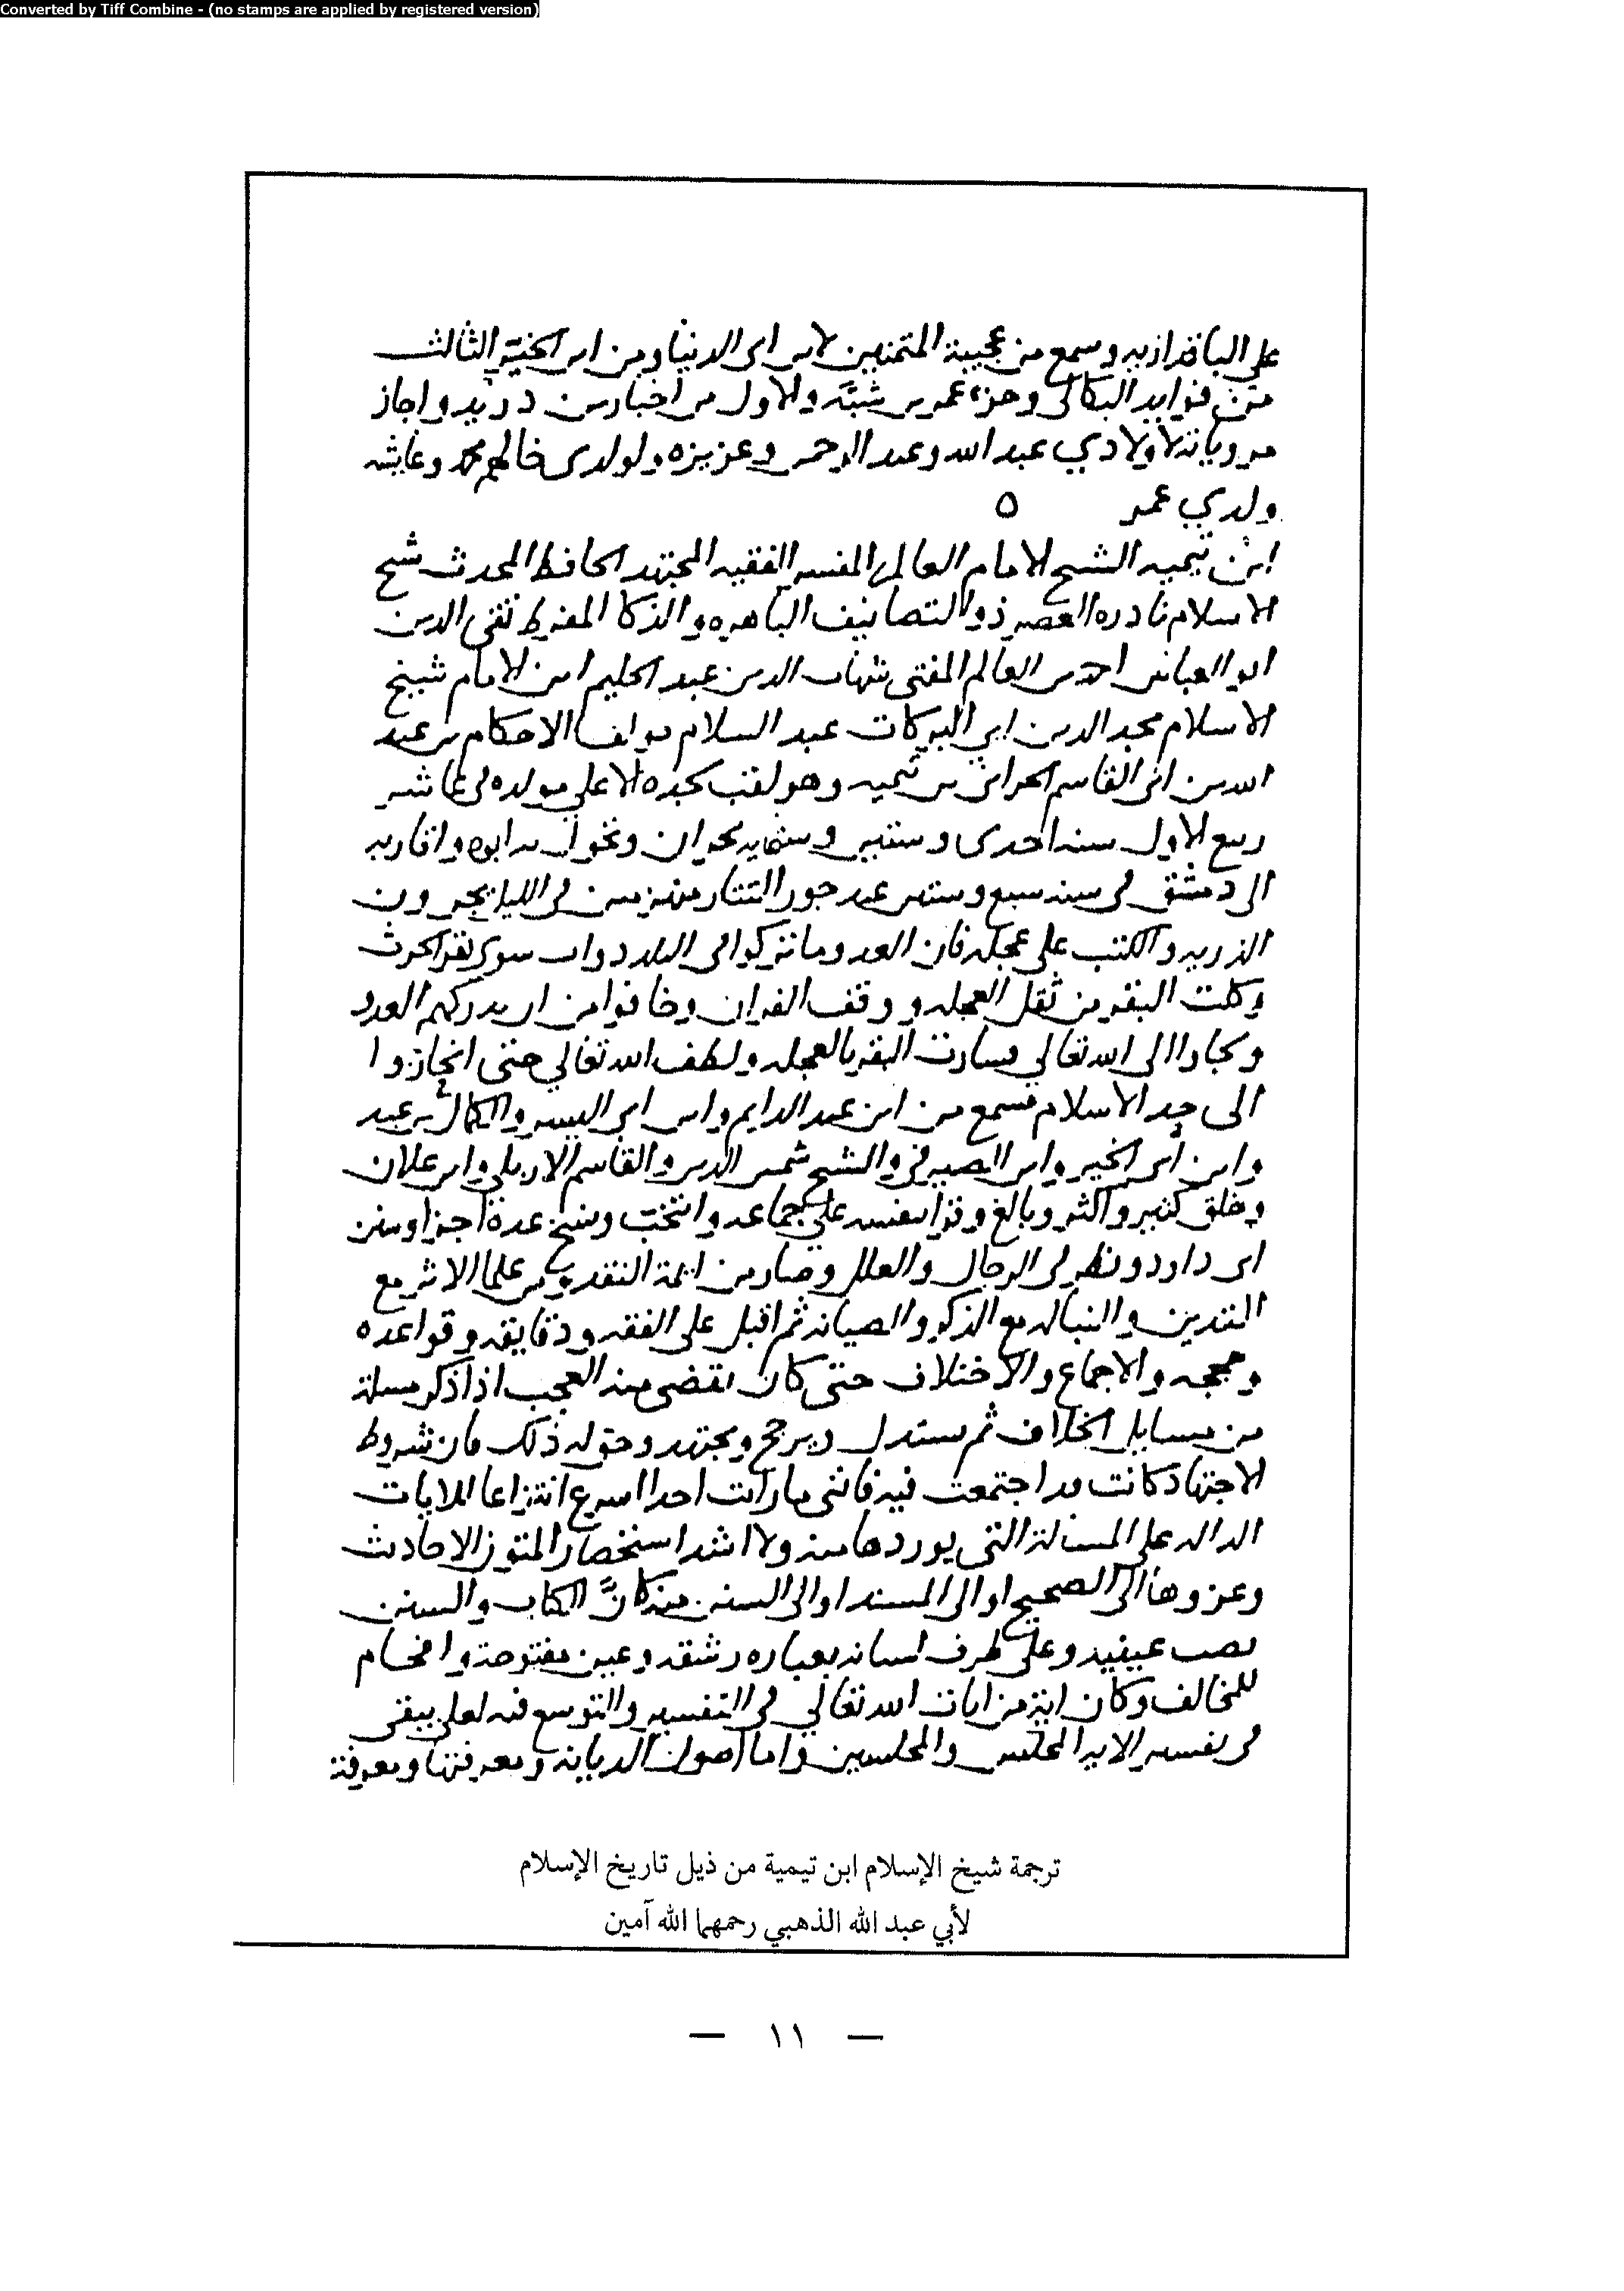 Converted by Tiff Combine - (no stamps are applied by registered version)
وسمع من المتمنين لابن ابي الدنيا ومن ابن الثالث
من فوايد وجزء عمر بن شبَّه والاول من اخبار بن دريد واجاز
مروياته لاولادي عبد الله وعبد الرحمن وعزيزه ولولدي خالهم محمد وعايشه
ولدي عمر ٥
ابن تيميه الشيخ الامام العالم المفسر الفقيه المجتهد الحافظ المحدث شيخ
الاسلام نادره العصر ذو التصانيف الباهره والذكا المفرط تقي الدين
ابو العباس احمد بن العالم المفتي شهاب الدين عبد الحليم ابن الامام شيخ
الاسلام مجد الدين ابي البركات عبد السلام مولف الاحكام بن عبد
الله بن ابي القاسم الحراني بن تيميه وهو لقب لجده الاعلي مولده في عاشر
ربيع الاول سنه احدى وستين وستمايه بحران وتحول به ابوه واقاربه
الى دمشق في سنه سبع وستين عند جور التتار منهزمين في الليل يجرون
الذريه والكتب على عجله فان العدو ما تركوا في البلد دواب سوى بقر الحرث
وكلت البقر من ثقل العجله ووقف الفران وخافوا من ان يدركهم العدو
ولجاوا الى الله تعالي فسارت البقر بالعجله ولطف الله تعالي حتى انحازوا
الى حد الاسلام فسمع من ابن عبد الدايم وابن ابي اليسر والكمال بن عبد
وابن ابي الخير وابن الصيرفي والشيخ شمس الدين والقاسم الاربلي وابن علان
وخلق كثير واكثر وبالغ وقرا بنفسه على جماعه وانتخب ونسخ عدة اجزا وسنن
ابي داود ونظر في الرجال والعلل وصار من ايمة النقد ومن علما الاثر مع
التدين والنباله مع الذكر والصيانه ثم اقبل على الفقه ودقايقه وقواعده
وحججه والاجماع والاختلاف حتى كان يقضى منه العجب اذا ذكر مسلة
من مسايل الخلاف ثم يستدل ويرجح ويجتهد وحق له ذلك فان شروط
الاجتهاد كانت قد اجتمعت فيه فانني ما رايت احدا اسرع انتزاعا للايات
الداله على المسالة التي يوردها منه ولا اشد استحضار المتون الاحاديث
وعزوها الى الصحيح او الى المسند او الى السنن منه كانَّ الكتاب والسنن
نصب عينيه وعلى طرف لسانه بعباره رشقه وعين مفتوحة وافحام
للمخالف وكان اية من ايات الله تعالي في التفسير والتوسع فيه لعله يبقى
في تفسير الايه المجلس والمجلسين واما اصول الديانه ومعرفتها ومعرفة
ترجمة شيخ الإسلام ابن تيمية من ذيل تاريخ الإسلام
لأبي عبد الله الذهبي رحمهما الله آمين
— ١١ —